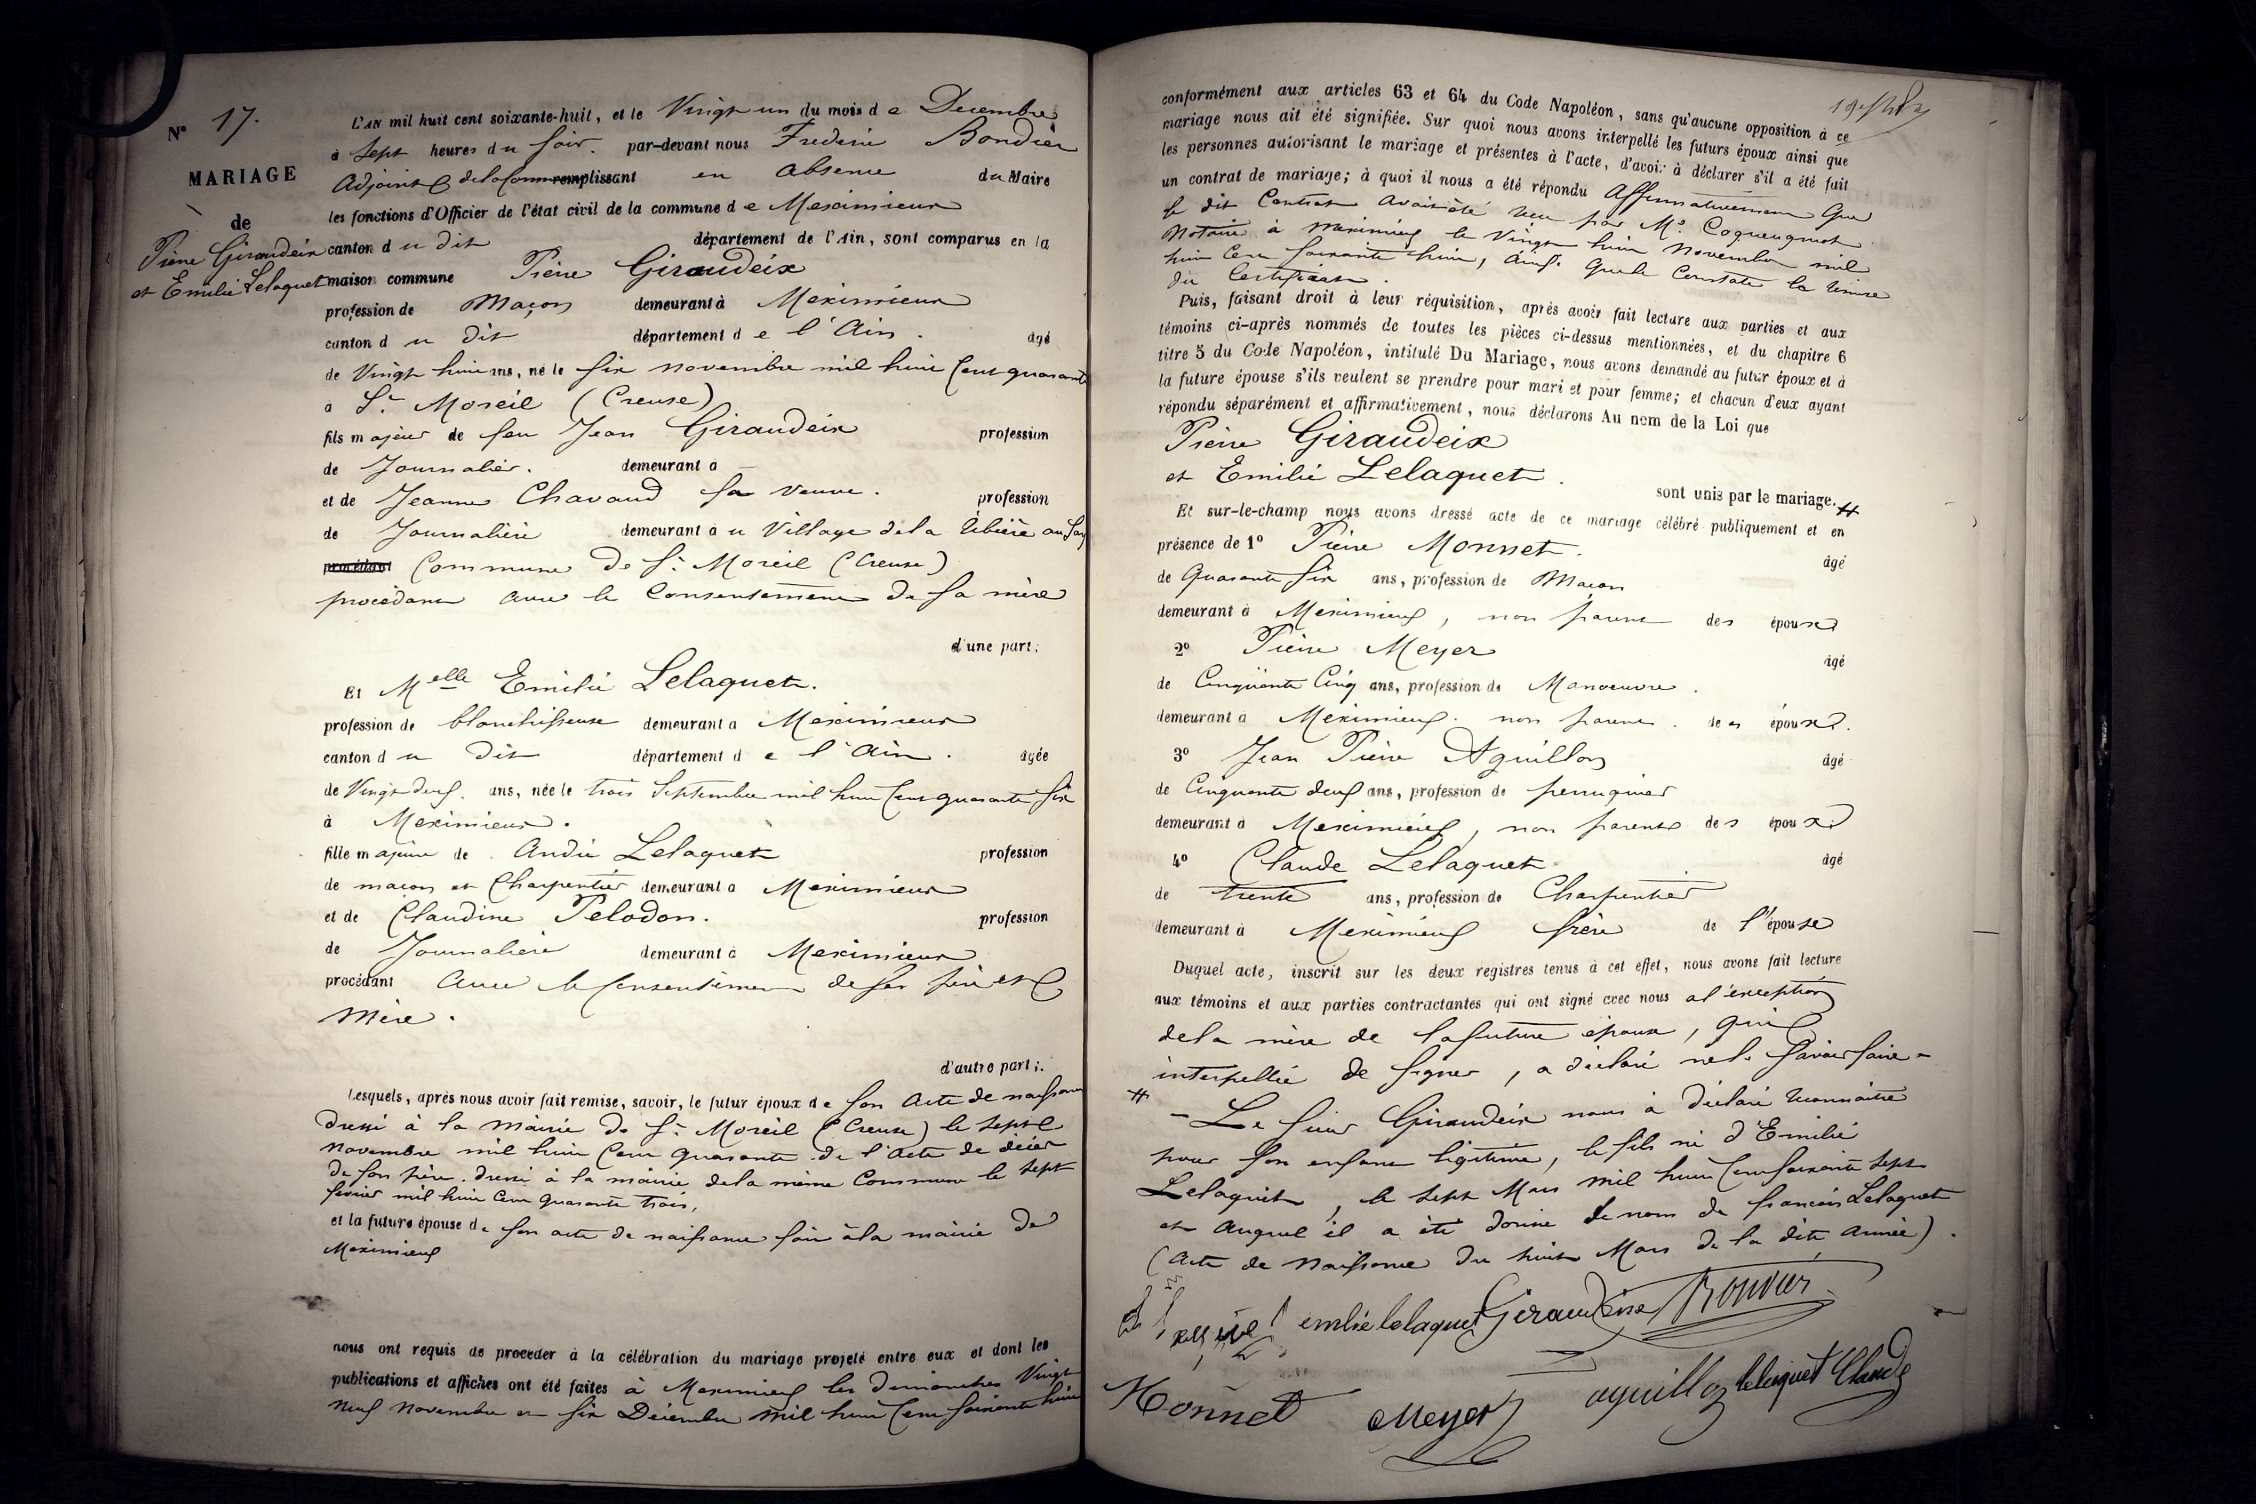 N° 17.
MARIAGE
de
Pierre Giraudeix
et Emilie Lelaquet
L'AN mil huit cent soixante-huit, et le Vingt un du mois de Decembre
à Sept heures du soir. par-devant nous Frederic Bondier
Adjoint de la Comm remplissant en absence du Maire
les fonctions d'Officier de l'état civil de la commune de Meximieux
canton du dit département de l'Ain, sont comparus en la
maison commune Pierre Giraudeix
profession de Maçon demeurant à Meximieux
canton du dit département de l'Ain. âgé
de Vingt huit ans, né le six novembre mil huit Cent quarante
à St. Moreil (Creuse)
fils majeur de feu Jean Giraudeix profession
de Journalier. demeurant à
et de Jeanne Chavaud sa veuve. profession
de Journalière demeurant au Village de la
procédant Commune de St. Moreil (Creuse)
procédant avec le Consentement de sa mère
d'une part;
Et Melle Emilie Lelaquet.
profession de blanchisseuse demeurant à Meximieux
canton du dit département de l'Ain. âgée
de Vingt deux. ans, née le trois Septembre mil huit Cent quarante six
à Meximieux.
fille majeure de André Lelaquet profession
de maçon et Charpentier demeurant à Meximieux
et de Claudine Pelodon. profession
de Journalière demeurant à Meximieux
procédant avec le Consentement de ses père et
mère.
d'autre part;.
Lesquels, après nous avoir fait remise, savoir, le futur époux de son Acte de naissance
dressé à la Mairie de St. Moreil (Creuse) le sept
novembre mil huit Cent quarante. de l'acte de décès
de son père. dressé à la mairie de la même Commune le sept
février mil huit Cent quarante trois,
et la future épouse de son acte de naissance fait à la mairie de
Meximieux
nous ont requis de procéder à la célébration du mariage projeté entre eux et dont les
publications et affiches ont été faites à Meximieux les dimanches Vingt
neuf novembre et six Décembre mil huit Cent soixante huit
conformément aux articles 63 et 64 du Code Napoléon, sans qu'aucune opposition à ce
mariage nous ait été signifiée. Sur quoi nous avons interpellé les futurs époux ainsi que
les personnes autorisant le mariage et présentes à l'acte, d'avoir à déclarer s'il a été fait
un contrat de mariage; à quoi il nous a été répondu Affirmativement Que
le dit Contrat avait été reçu par Me. Coqueugniot
Notaire à Meximieux le Vingt huit Novembre mil
huit Cent soixante huit, ainsi que le Constate la teneur
du Certificat.
Puis, faisant droit à leur réquisition, après avoir fait lecture aux parties et aux
témoins ci-après nommés de toutes les pièces ci-dessus mentionnées, et du chapitre 6
titre 5 du Code Napoléon, intitulé Du Mariage, nous avons demandé au futur époux et à
la future épouse s'ils veulent se prendre pour mari et pour femme; et chacun d'eux ayant
répondu séparément et affirmativement, nous déclarons Au nom de la Loi que
Pierre Giraudeix
et Emilie Lelaquet.
sont unis par le mariage. #
Et sur-le-champ nous avons dressé acte de ce mariage célébré publiquement et en
présence de 1° Pierre Monnet. âgé
de Quarante six ans, profession de Maçon
demeurant à Meximieux, non parent des époux
2° Pierre Meyer âgé
de Cinquante Cinq ans, profession de Manoeuvre.
demeurant à Meximieux. non parent. des époux.
3° Jean Pierre Aguillon âgé
de Cinquante deux ans, profession de perruquier
demeurant à Meximieux, non parent des époux
4° Claude Lelaquet âgé
de trente ans, profession de Charpentier
demeurant à Meximieux frère de l'épouse
Duquel acte, inscrit sur les deux registres tenus à cet effet, nous avons fait lecture
aux témoins et aux parties contractantes qui ont signé avec nous à l'exception
de la mère de la future épouse, qui
interpellée de signer, a déclaré ne le savoir faire
# - Le sieur Giraudeix nous a déclaré reconnaître
pour son enfant légitime, le fils né d'Emilie
Lelaquet, le sept Mars mil huit Cent soixante sept
et auquel il a été donné le nom de françois Lelaquet
(acte de Naissance du huit Mars de la dite année).
emilie lelaquet Giraudeix Bonvier
Monnet Meyer aguillon lelaquet Claude